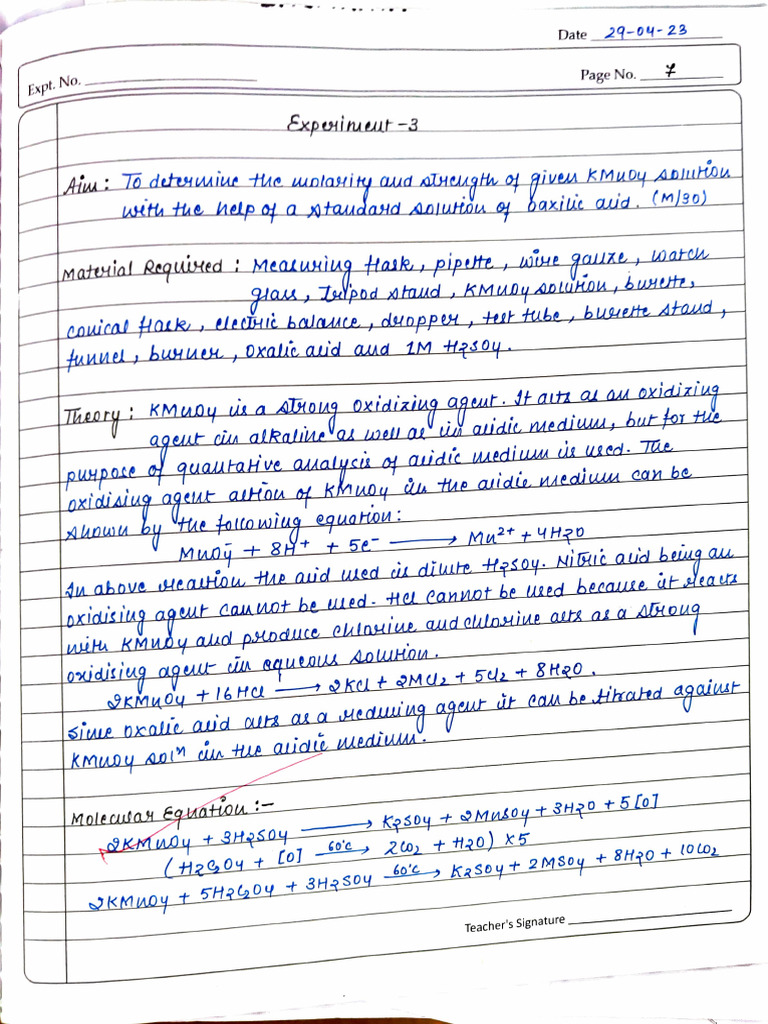 Date 29-04-23
Expt. No.
Page No. 7
Experiment -3
Aim : To determine the molarity and strength of given KMnO4 solution
with the help of a standard solution of oaxilic acid. (M/30)
Material Required : Measuring flask, pipette, wire gauze, watch
glass, Tripod stand, KMnO4 solution, burette,
conical flask, electric balance, dropper, test tube, burette stand,
funnel, burner, Oxalic acid and 1M H2SO4.
Theory : KMnO4 is a strong oxidizing agent. It acts as an oxidizing
agent in alkaline as well as in acidic medium, but for the
purpose of quantative analysis of acidic medium is used. The
oxidising agent action of KMnO4 in the acidic medium can be
shown by the following equation:
MnO4⁻ + 8H⁺ + 5e⁻ ⟶ Mn²⁺ + 4H2O
In above reaction the acid used is dilute H2SO4. Nitric acid being an
oxidising agent cannot be used. HCl cannot be used because it reacts
with KMnO4 and produce chlorine and chlorine acts as a strong
oxidising agent in aqueous solution.
2KMnO4 + 16HCl ⟶ 2KCl + 2MCl2 + 5Cl2 + 8H2O.
Since oxalic acid acts as a reducing agent it can be titrated against
KMnO4 solⁿ in the acidic medium.
Molecular Equation :-
2KMnO4 + 3H2SO4 ⟶ K2SO4 + 2MnSO4 + 3H2O + 5[O]
(H2C2O4 + [O] 60°C⟶ 2CO2 + H2O) ×5
2KMnO4 + 5H2C2O4 + 3H2SO4 60°C⟶ K2SO4 + 2MSO4 + 8H2O + 10CO2
Teacher's Signature